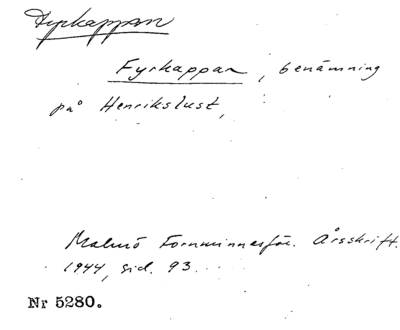 Fyrkappan
Fyrkappan, benämning
på Henrikslust,
Malmö Fornminnesför. Årsskrift.
1944, sid. 93.
Nr 5280.